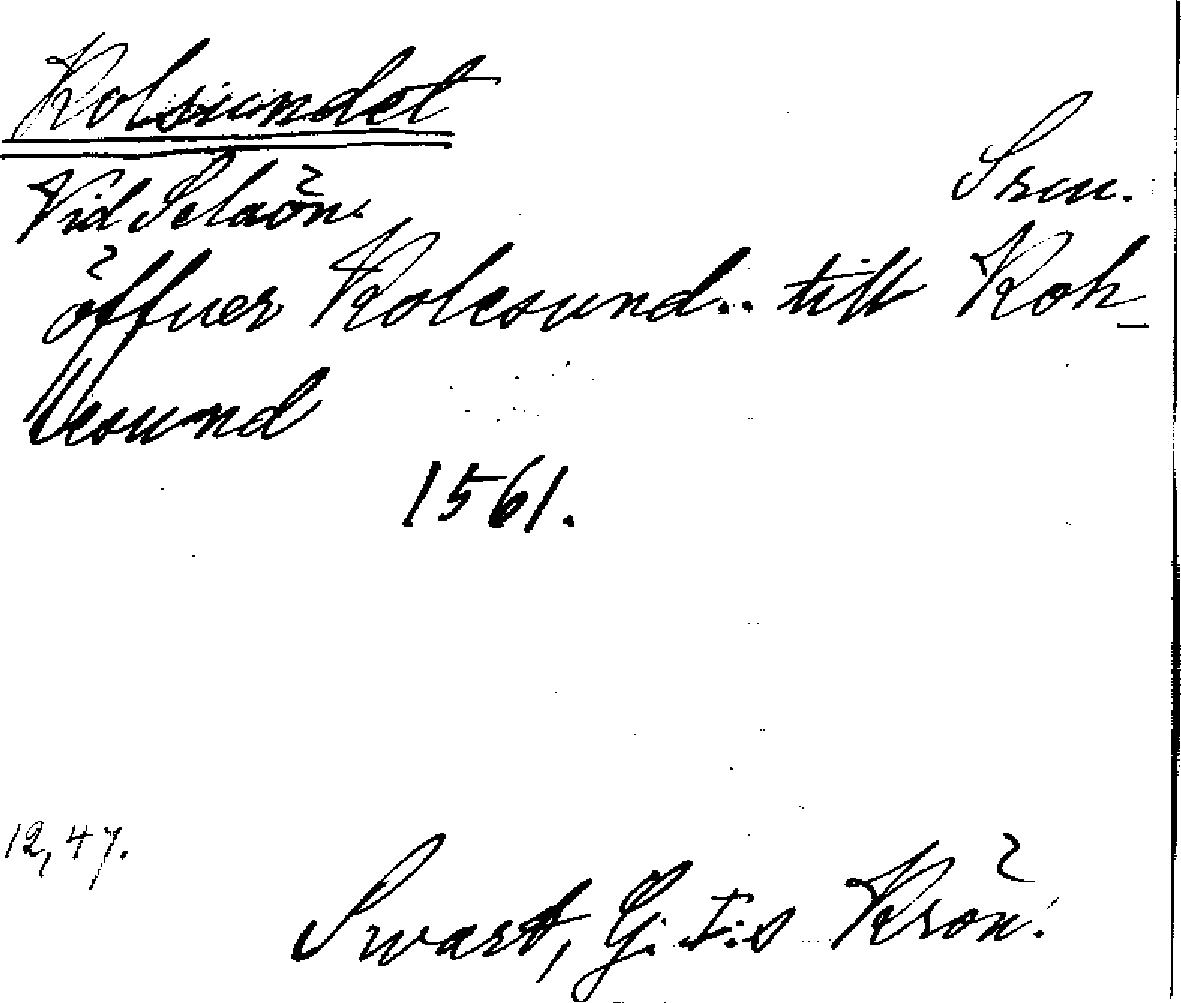 Kolsundet
Vid Selaön. Srm.
öffuer Kolesund.. till Koh-
lesund
1561.
12, 47.
Swart, G. I:s Krön.